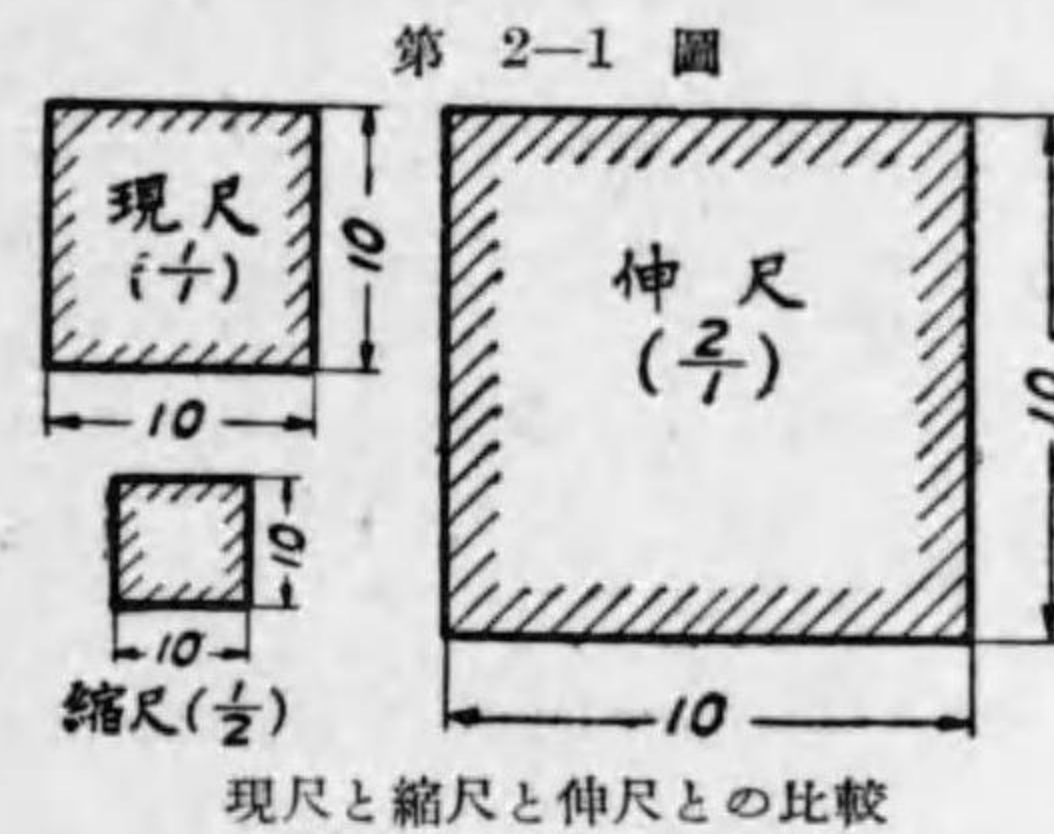 第 2—1 圖
現尺
(1/1)
10
10
伸尺
(2/1)
10
10
10
10
縮尺(1/2)
現尺と縮尺と伸尺との比較